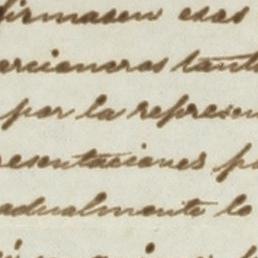 firmasen esas
arcioneros tant
por la represen
resentaciones p
adualmente lo